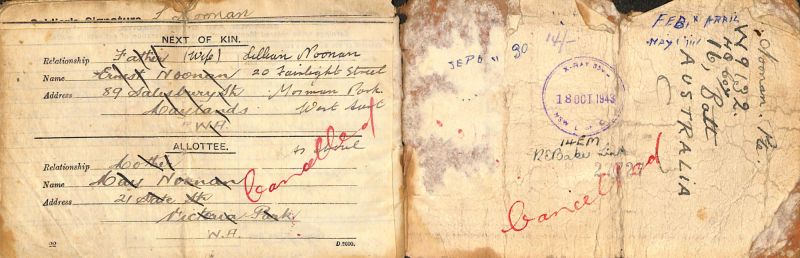 Soldier's Signature J Noonan
NEXT OF KIN.
Relationship Father (Wife) Lillian Noonan
Name Ernest Noonan 20 Fairlight Street
Address 89 Salisbury St Mosman Park
Maylands West Aust
"W.A."
ALLOTTEE.
Relationship Mother as above
Name Mary Noonan
Address 21 State St
Victoria Park
W.A.
Cancelled
22 D.2000.
SEPD 11 30 14/-
X-RAY
18 OCT 1943
NSW L of C
14EM
Cancelled
FEB, & APRIL
MAY
Noonan. Pte.
W 9132.
16, Batt
AUSTRALIA